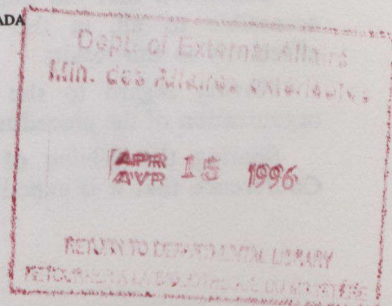 ADA
Dept. of External Affairs
Min. des Affaires extérieures
APR
AVR 15 1996
RETURN TO DEPARTMENTAL LIBRARY
RETOURNER A LA BIBLIOTHEQUE DU MINISTERE